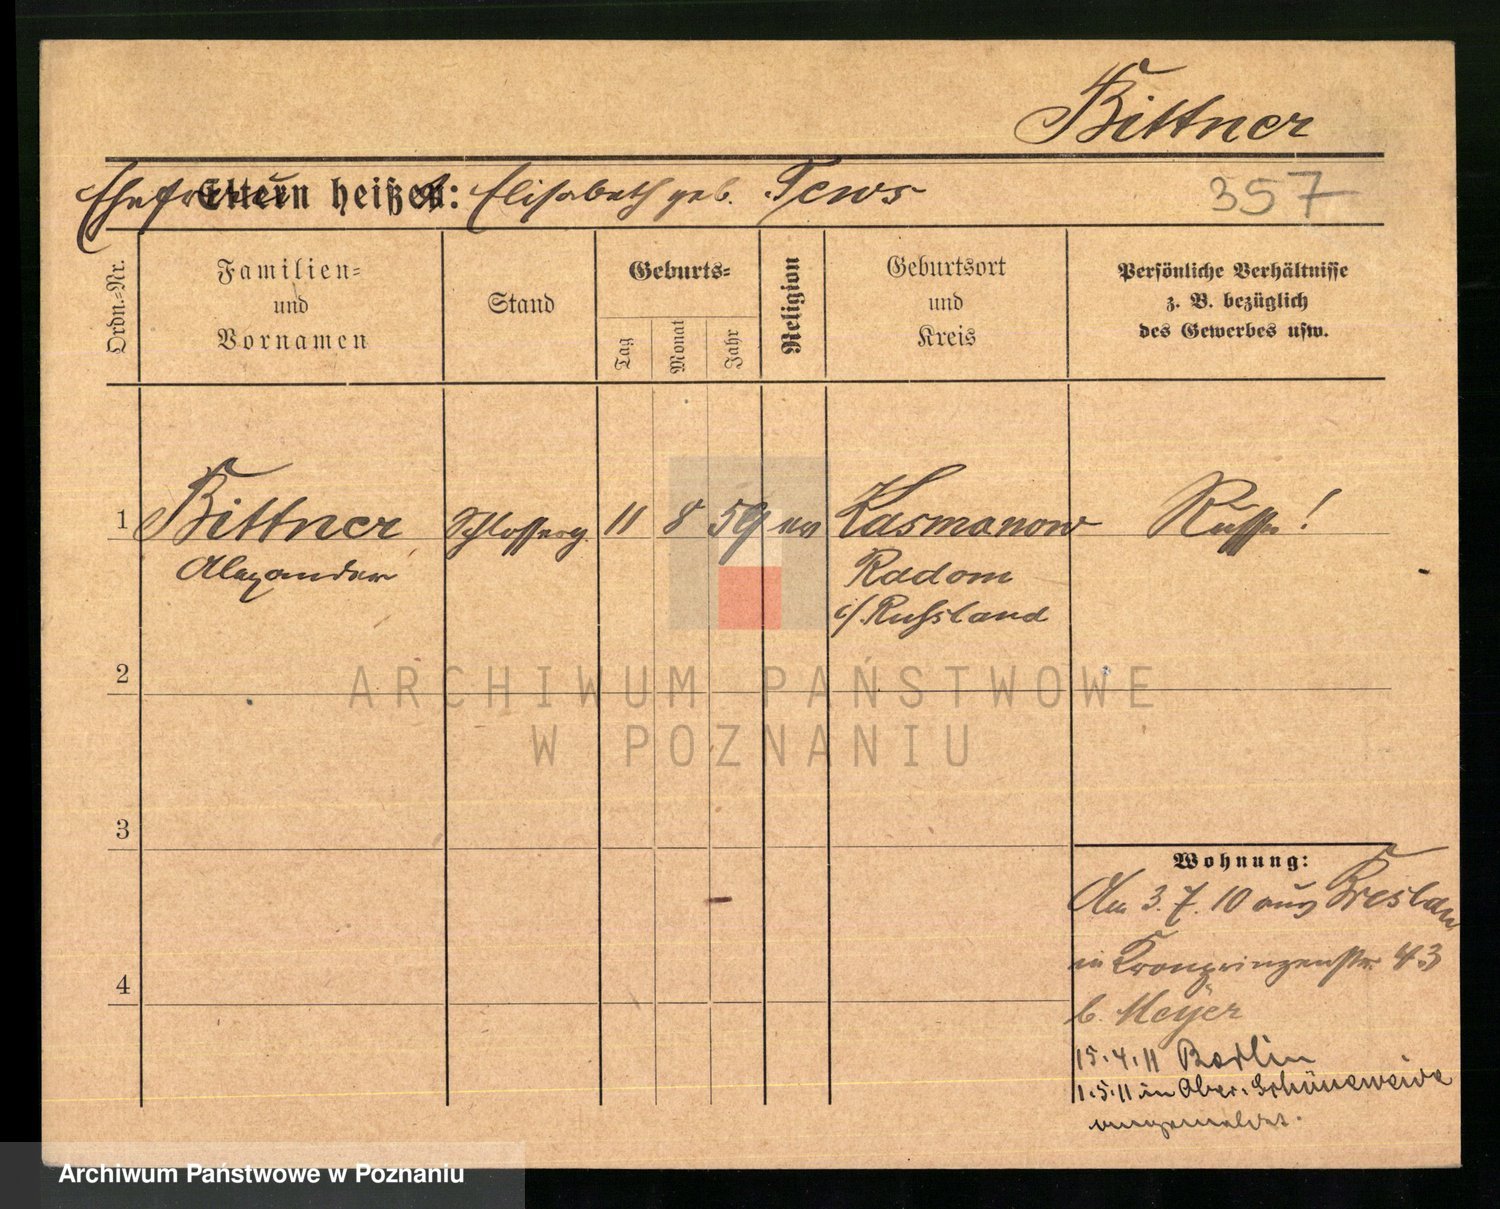 Bittner
Eltern heißen:
Ehefrau Elisabeth geb. Tews
357
Ordn.-Nr.
Familien-
und
Vornamen
Stand
Geburts-
Tag
Monat
Jahr
Religion
Geburtsort
und
Kreis
Persönliche Verhältnisse
z. B. bezüglich
des Gewerbes usw.
1 Bittner Schlosserg. 11 8 59 ev Kasmanow Russe!
Alexander Radom
i/Russland
ARCHIWUM PAŃSTWOWE
W POZNANIU
2
3
4
Wohnung:
Am 3.7.10 aus Breslau
in Kronprinzenstr. 43
b. Meyer
15.4.11 Berlin
1.5.11 in Ober-Schöneweide
angemeldet.
Archiwum Państwowe w Poznaniu